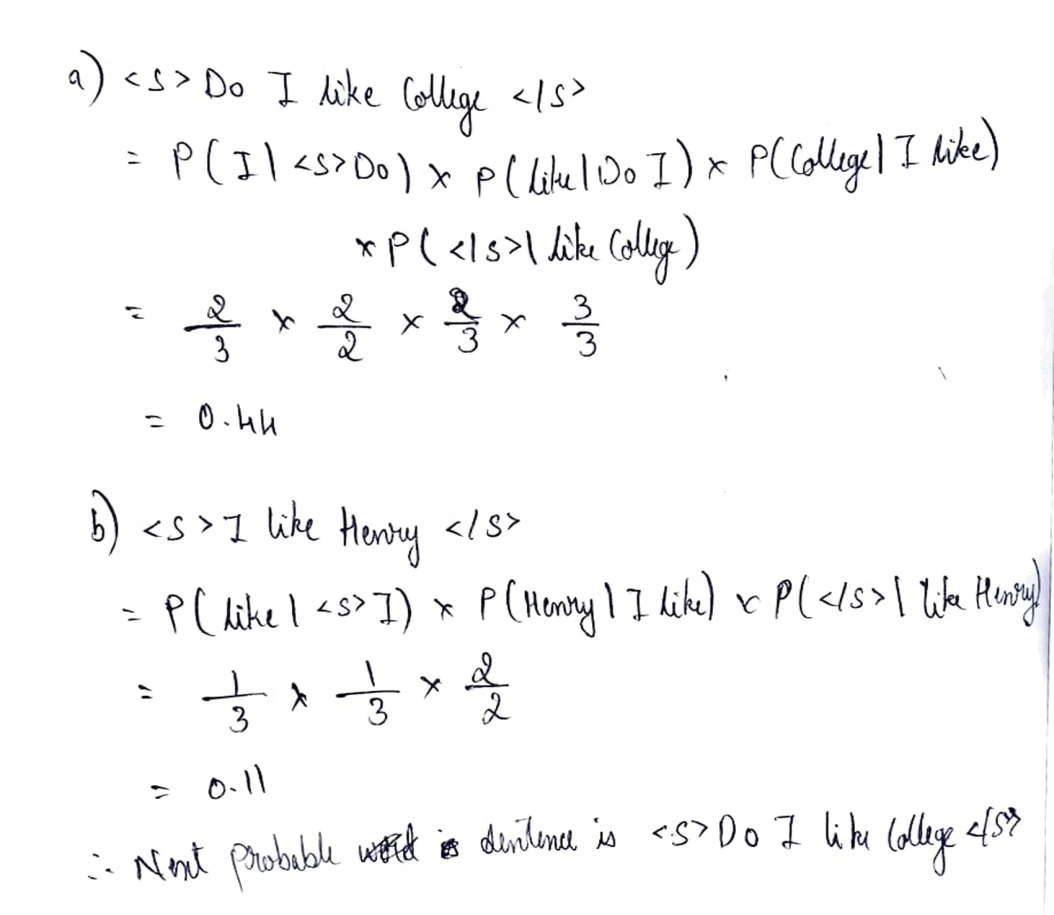 a) <s> Do I like College </s>
= P(I | <s> Do) x P(like | Do I) x P(College | I like)
x P(</s> | like College)
= 2/3 x 2/2 x 2/3 x 3/3
= 0.44
b) <s> I like Henry </s>
= P(like | <s> I) x P(Henry | I like) x P(</s> | like Henry)
= 1/3 x 1/3 x 2/2
= 0.11
∴ Next probable word is sentence is <s> Do I like College </s>